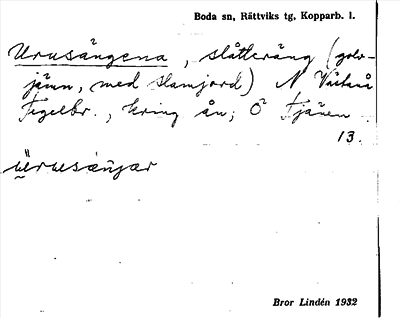 Boda sn, Rättviks tg, Kopparb. l.
Urusängena, slåtteräng (golv-
jämn, med slamjord) N Västanå
Tegelbr., kring ån; Ö Tjären
13.
ùrusäŋjar
Bror Lindén 1932